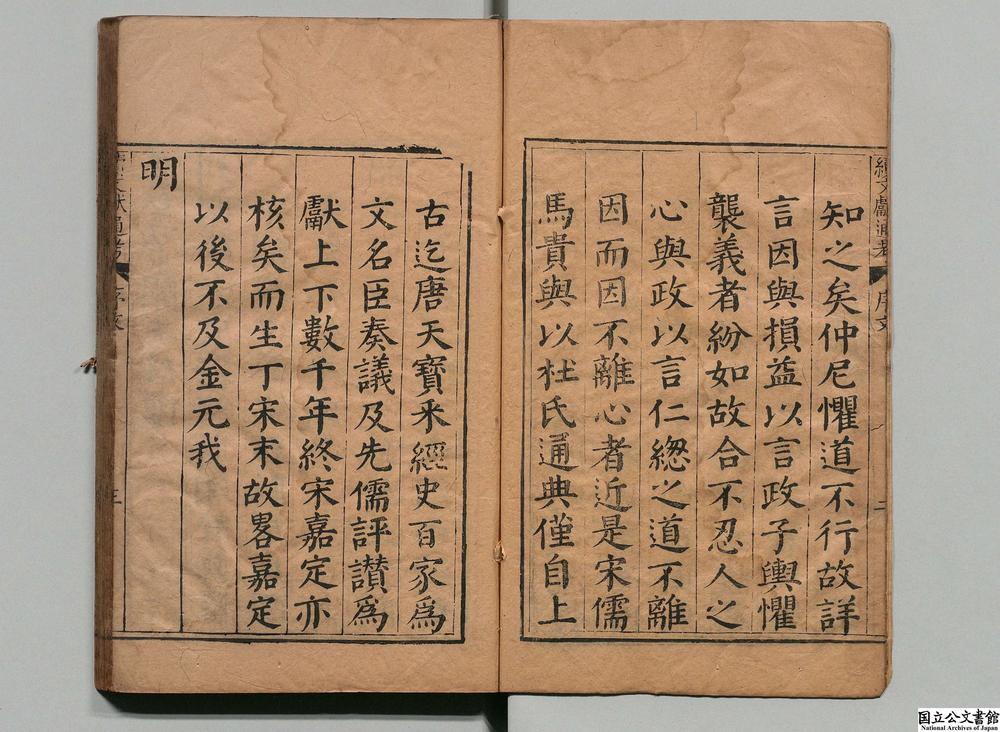 知之矣仲尼懼道不行故詳
言因與損益以言政子輿懼
襲義者紛如故合不忍人之
心與政以言仁緫之道不離
因而因不離心者近是宋儒
馬貴與以杜氏通典僅自上
古迄唐天寶釆經史百家爲
文名臣奏議及先儒評讃爲
獻上下數千年終宋嘉定亦
核矣而生丁宋末故畧嘉定
以後不及金元我
明
續文獻通考 序文 二
續文獻通考 序文 三
国立公文書館
National Archives of Japan